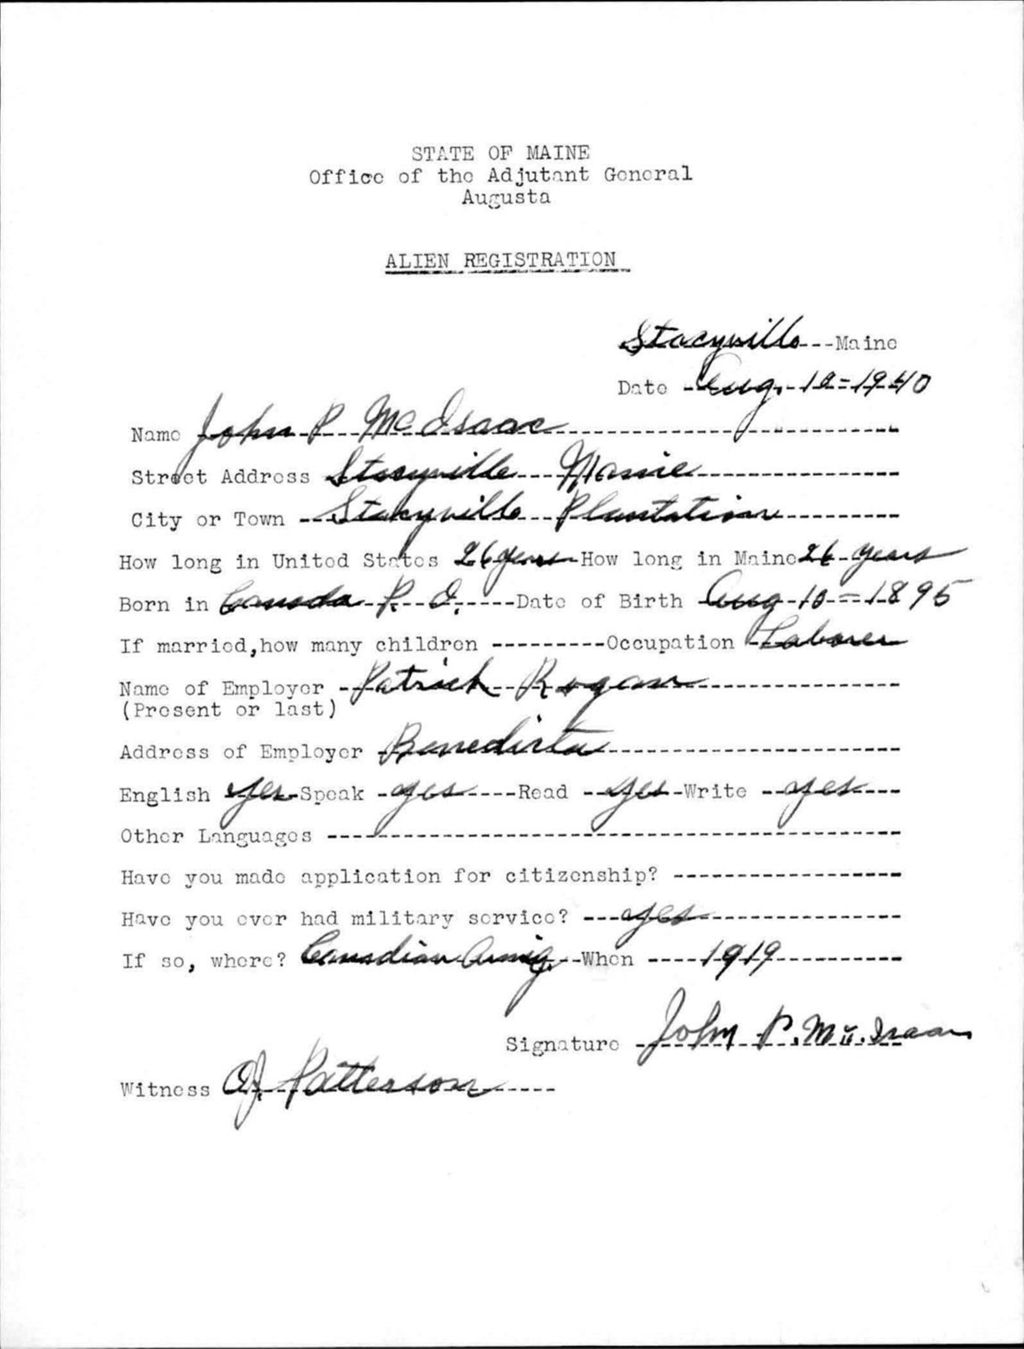 STATE OF MAINE
Office of the Adjutant General
Augusta
ALIEN REGISTRATION
Stacyville Maine
Date Aug. 10 = 1940
Name John P McIsaac
Street Address Stacyville Maine
City or Town Stacyville Plantation
How long in United States 26 years How long in Maine 26 years
Born in Canada P. Date of Birth Aug 10 = 1895
If married, how many children Occupation Laborer
Name of Employer Patrick Rogan
(Present or last)
Address of Employer Benedicta
English Yes Speak yes Read yes Write yes
Other Languages
Have you made application for citizenship?
Have you ever had military service? yes
If so, where? Canadian Army. When 1919
Signature John P. Mc. Isaac
Witness O.J. Patterson